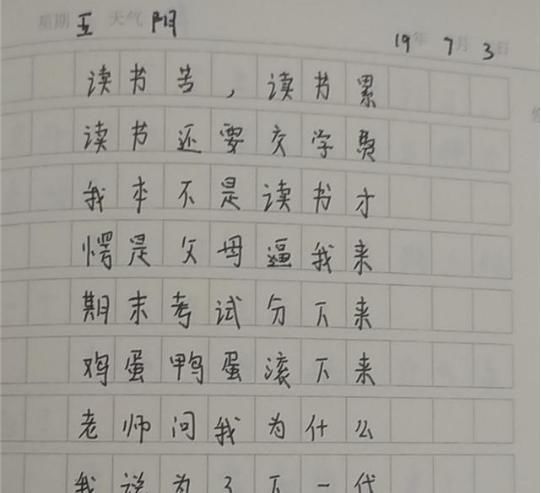 星期 五 天气 阴 19年 7月 3日
读书苦，读书累
读书还要交学费
我本不是读书才
愣是父母逼我来
期末考试分下来
鸡蛋鸭蛋滚下来
老师问我为什么
我说为了下一代